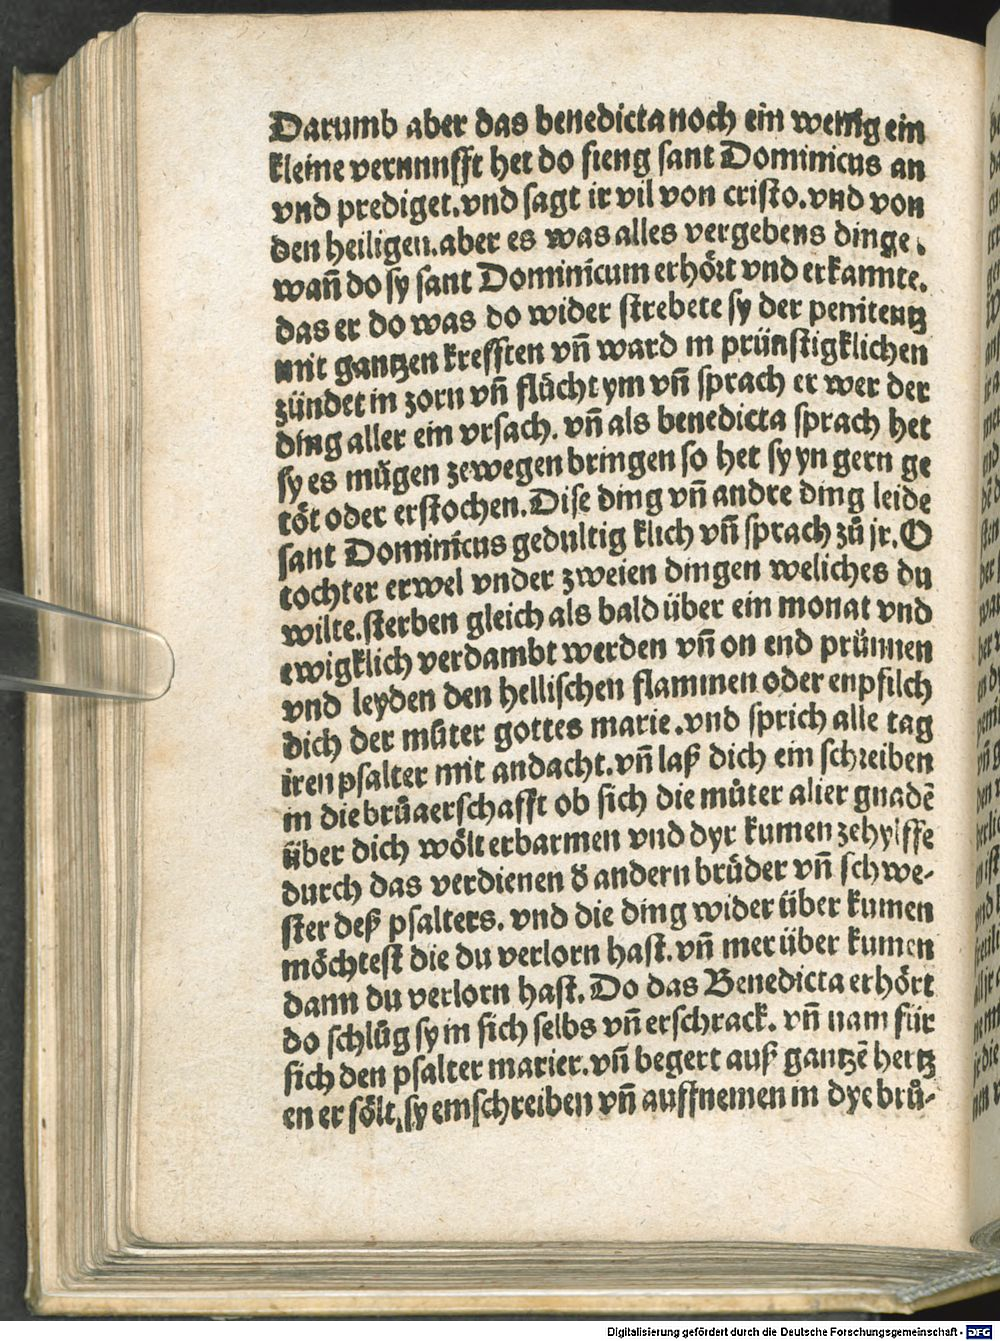 Darumb aber das benedicta noch ein wenig ein
kleine vernunfft het do fieng sant Dominicus an
vnd prediget.vnd sagt ir vil von cristo.vnd von
den heiligen.aber es was alles vergebens dinge.
wan̄ do sy sant Dominicum erhört vnd erkannte.
das er do was do wider strebete sy der penitentz
mit gantzen krefften vn̄ ward in prünstigklichen
zündet in zorn vn̄ flůcht ym vn̄ sprach er wer der
ding aller ein vrsach. vn̄ als benedicta sprach het
sy es mügen zewegen bringen so het sy yn gern ge
töt oder erstochen. Dise ding vn̄ andre ding leide
sant Dominicus gedultig klich vn̄ sprach zů jr. O
tochter erwel vnder zweien dingen weliches du
wilte.sterben gleich als bald über ein monat vnd
ewigklich verdambt werden vn̄ on end prünnen
vnd leyden den hellischen flammen oder enpfilch
dich der můter gottes marie.vnd sprich alle tag
iren psalter mit andacht.vn̄ laß dich ein schreiben
in die brůderschafft ob sich die můter aller gnadē
über dich wölt erbarmen vnd dyr kumen zehylffe
durch das verdienen d̕ andern brüder vn̄ schwe-
ster deß psalters. vnd die ding wider über kumen
möchtest die du verlorn hast.vn̄ mer über kumen
dann du verlorn hast. Do das Benedicta erhört
do schlůg sy in sich selbs vn̄ erschrack. vn̄ nam für
sich den psalter marier.vn̄ begert auß gantzē hertz
en er sölt sy einschreiben vn̄ auffnemen in dye brů-
Digitalisierung gefördert durch die Deutsche Forschungsgemeinschaft - DFG